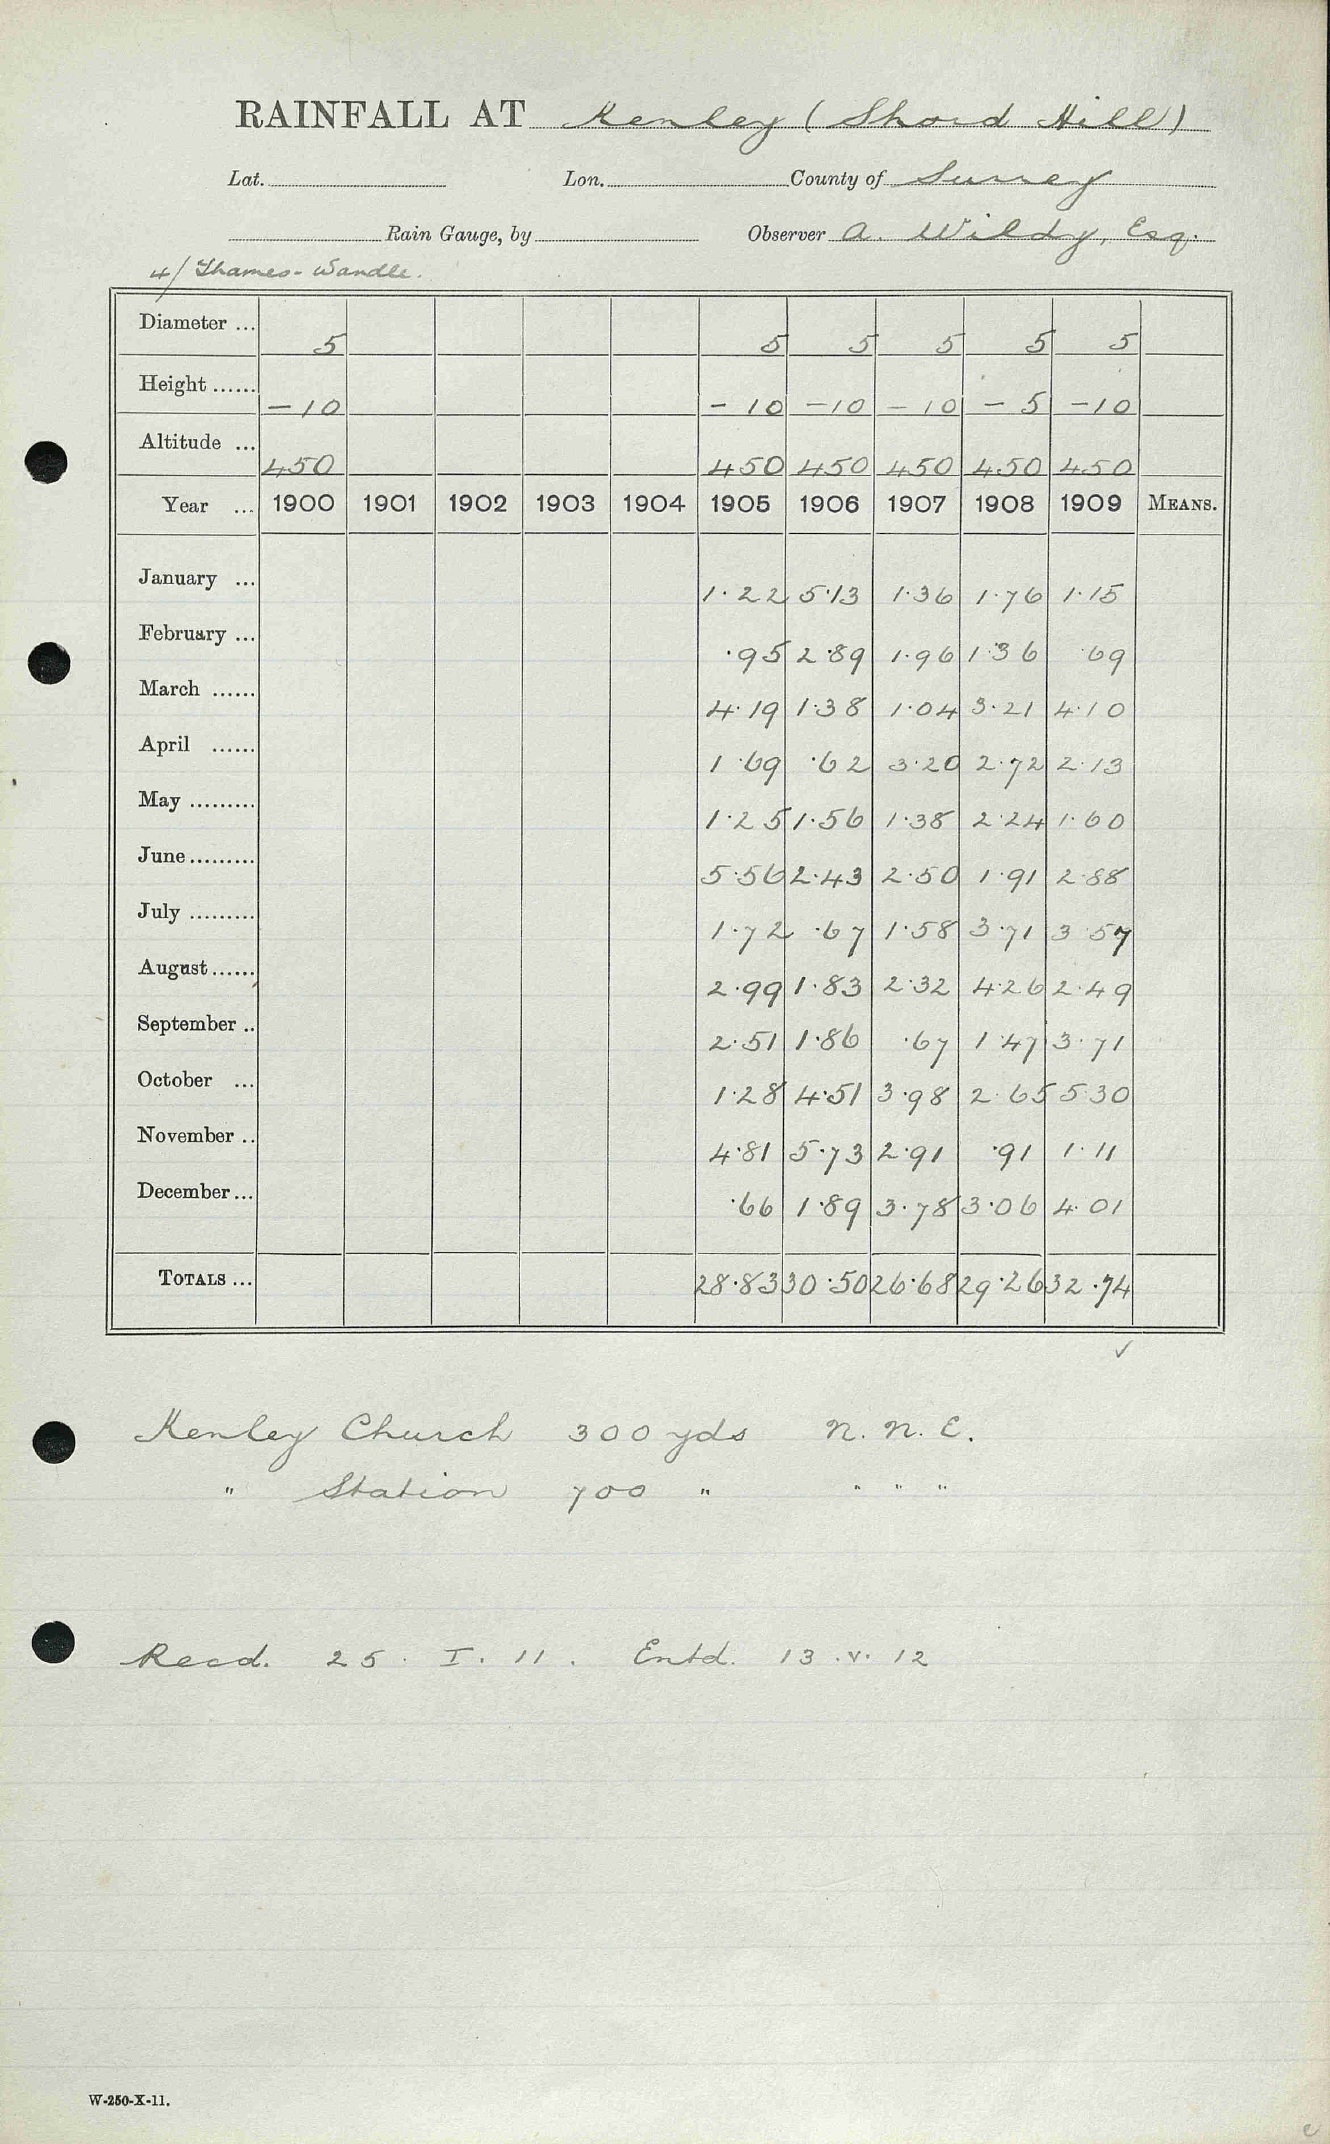 RAINFALL AT Kenley (Shord Hill)
Lat. Lon. County of Surrey
Rain Gauge, by Observer A. Wildy, Esq.
4/ Thames-Wandle.
Diameter ... 5 5 5 5 5 5
Height ...... -10 -10 -10 -10 -5 -10
Altitude ... 450 450 450 450 450 450
Year ... 1900 1901 1902 1903 1904 1905 1906 1907 1908 1909 MEANS.
January ... 1.22 5.13 1.36 1.76 1.15
February ... .95 2.89 1.96 1.36 .69
March ...... 4.19 1.38 1.04 3.21 4.10
April ...... 1.69 .62 3.20 2.72 2.13
May ......... 1.25 1.56 1.38 2.24 1.60
June ......... 5.56 2.43 2.50 1.91 2.88
July ......... 1.72 .67 1.58 3.71 3.57
August ...... 2.99 1.83 2.32 4.26 2.49
September .. 2.51 1.86 .67 1.47 3.71
October ... 1.28 4.51 3.98 2.65 5.30
November .. 4.81 5.73 2.91 .91 1.11
December ... .66 1.89 3.78 3.06 4.01
TOTALS ... 28.83 30.50 26.68 29.26 32.74
✓
Kenley Church 300 yds N. N. E.
" Station 700 " " " "
Recd. 25. I. 11. Entd. 13.v.12
W-250-X-11.